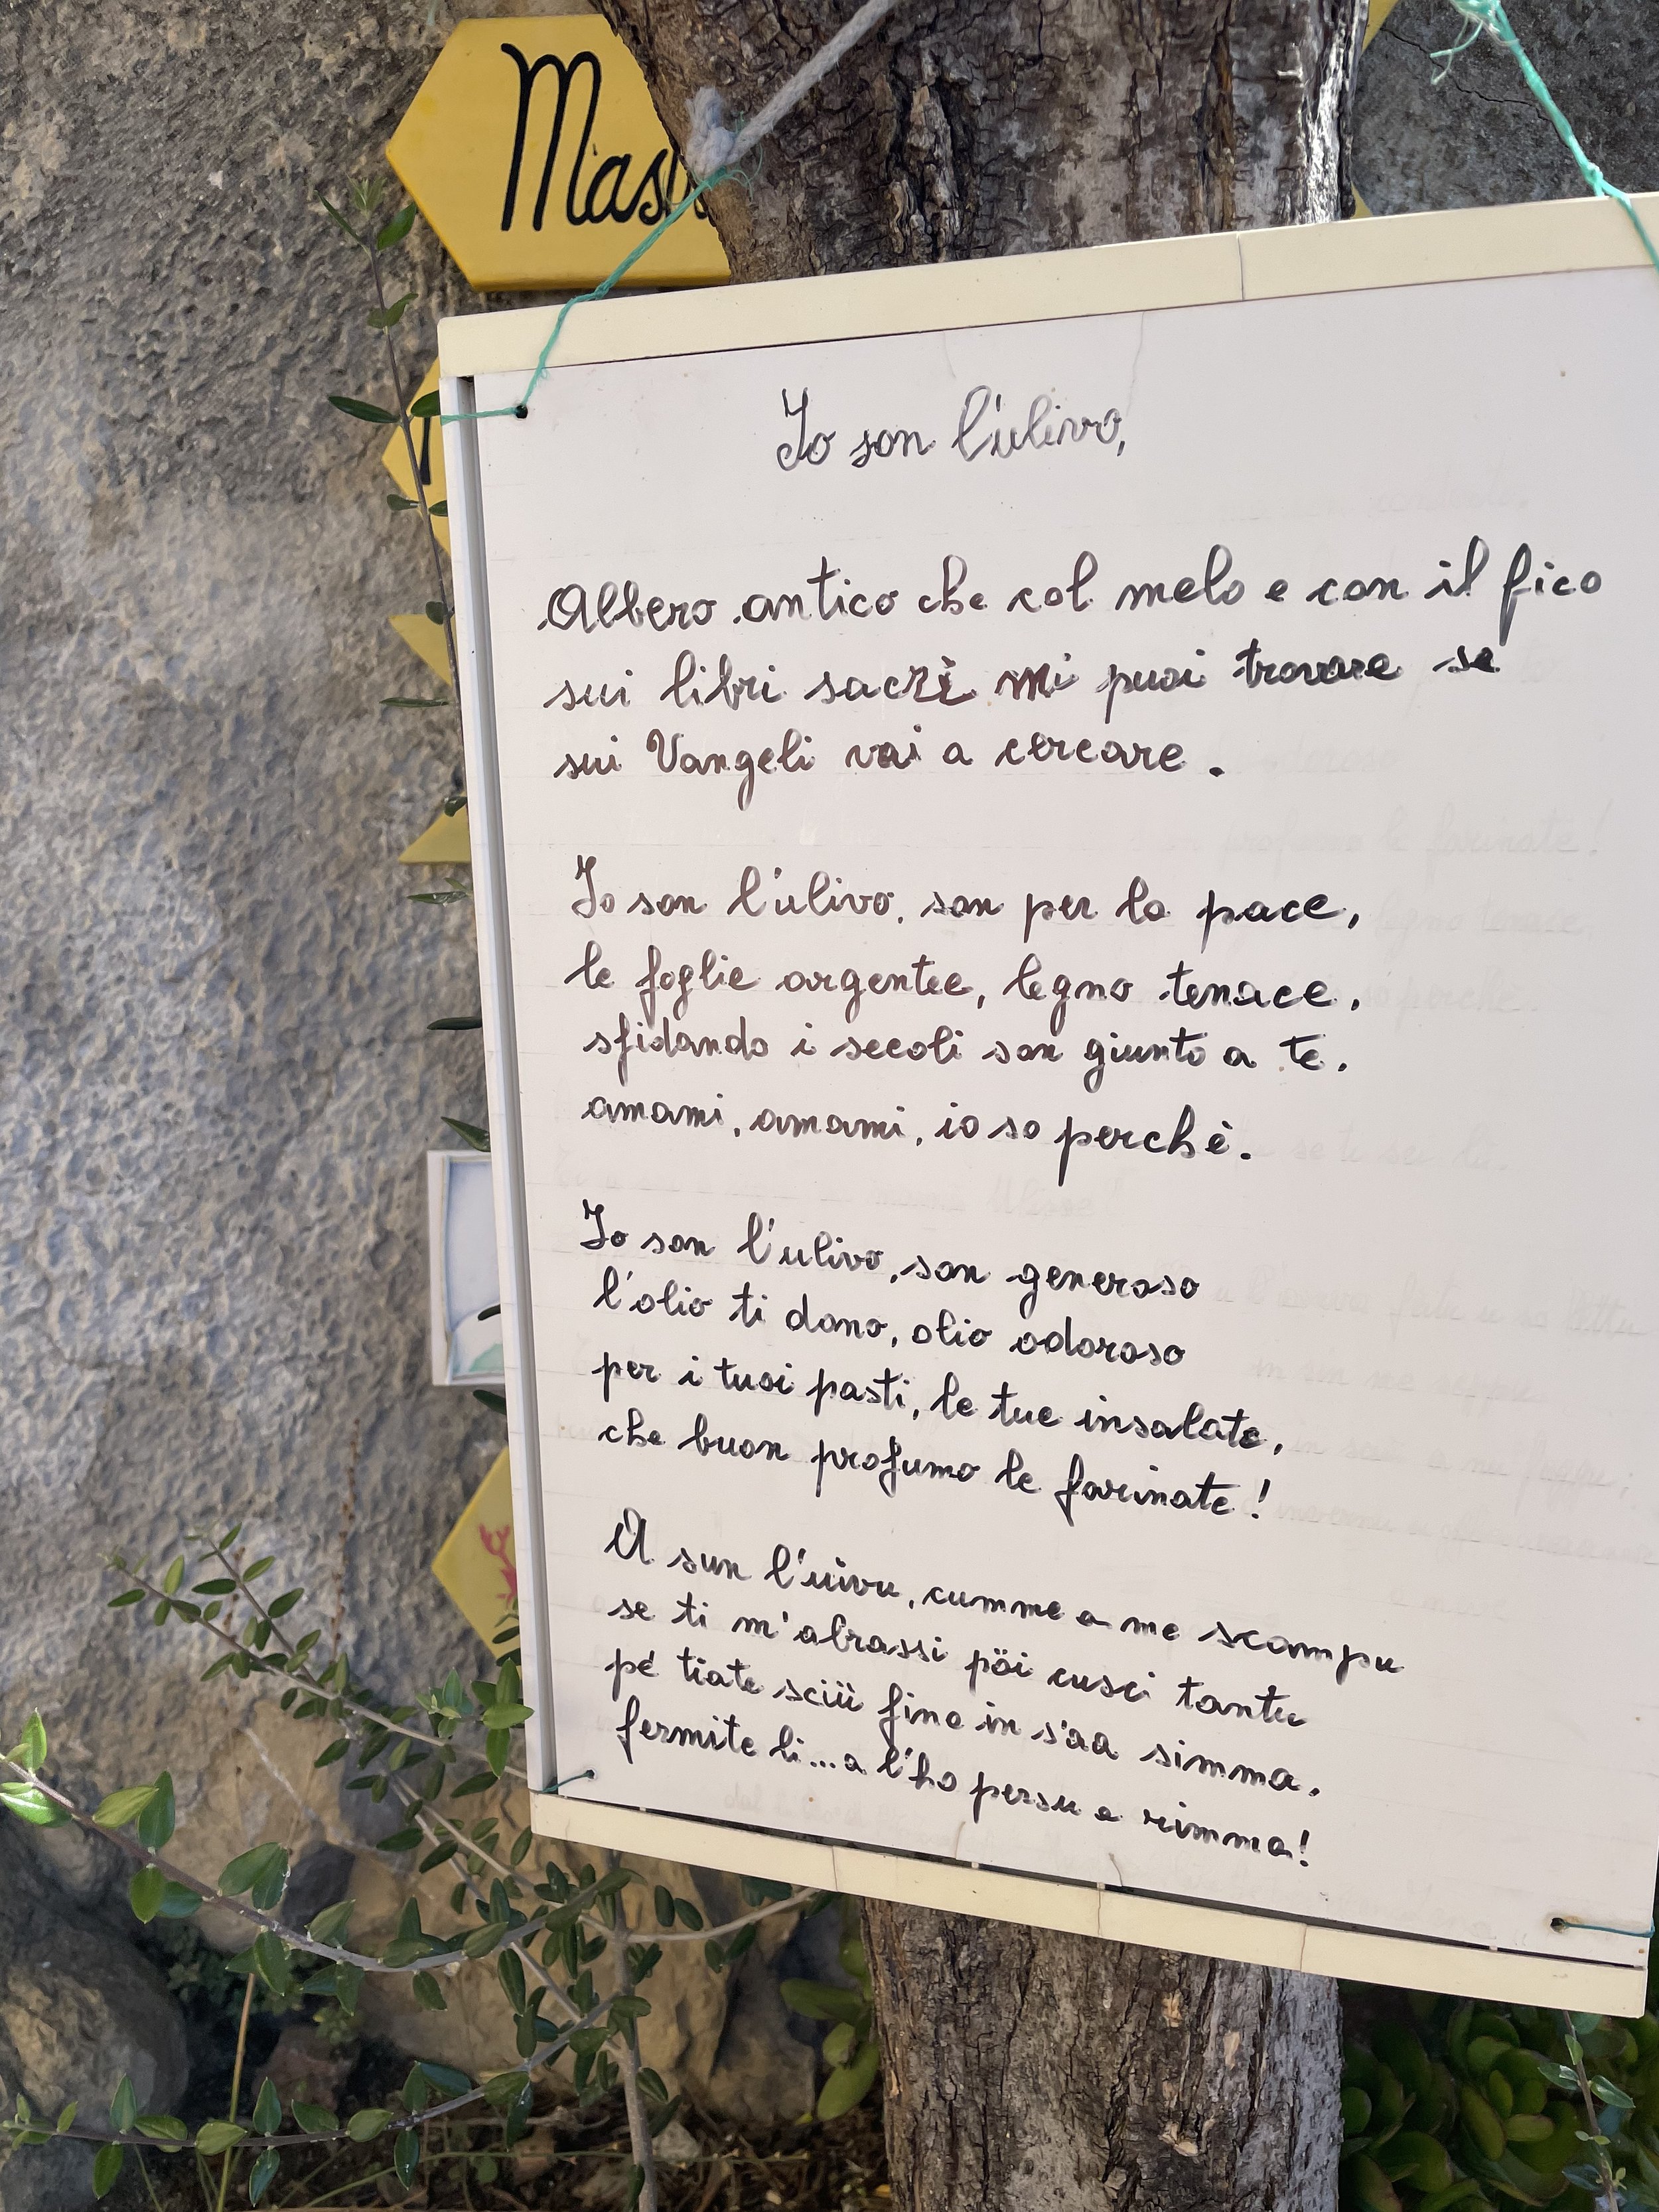 Mas
Io son l'ulivo,
Albero antico che col melo e con il fico
sui libri sacri mi puoi trovare se
sui Vangeli vai a cercare.
Io son l'ulivo, son per la pace,
le foglie argentee, legno tenace,
sfidando i secoli son giunto a te,
amami, amami, io so perchè.
Io son l'ulivo, son generoso
l'olio ti dono, olio odoroso
per i tuoi pasti, le tue insalate,
che buon profumo le farinate!
A sun l'uivu, cumme a me scampu
se ti m'abrassi pöi cusci tantu
pé tiate sciü fina in s'aa simma,
fermite li... a l'ho persu a rimma!